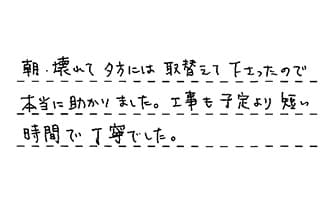 朝、壊れて夕方には取替えて下さったので
本当に助かりました。工事も予定より短い
時間で丁寧でした。